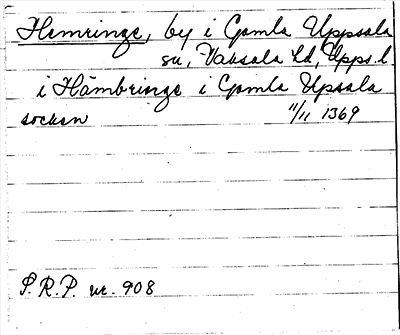 Hemringe, by i Gamla Uppsala
sn, Vaksala hd, Upps. l.
i Hämbringe i Gamla Upsala
socken 11/11 1369
S.R.P. nr. 908